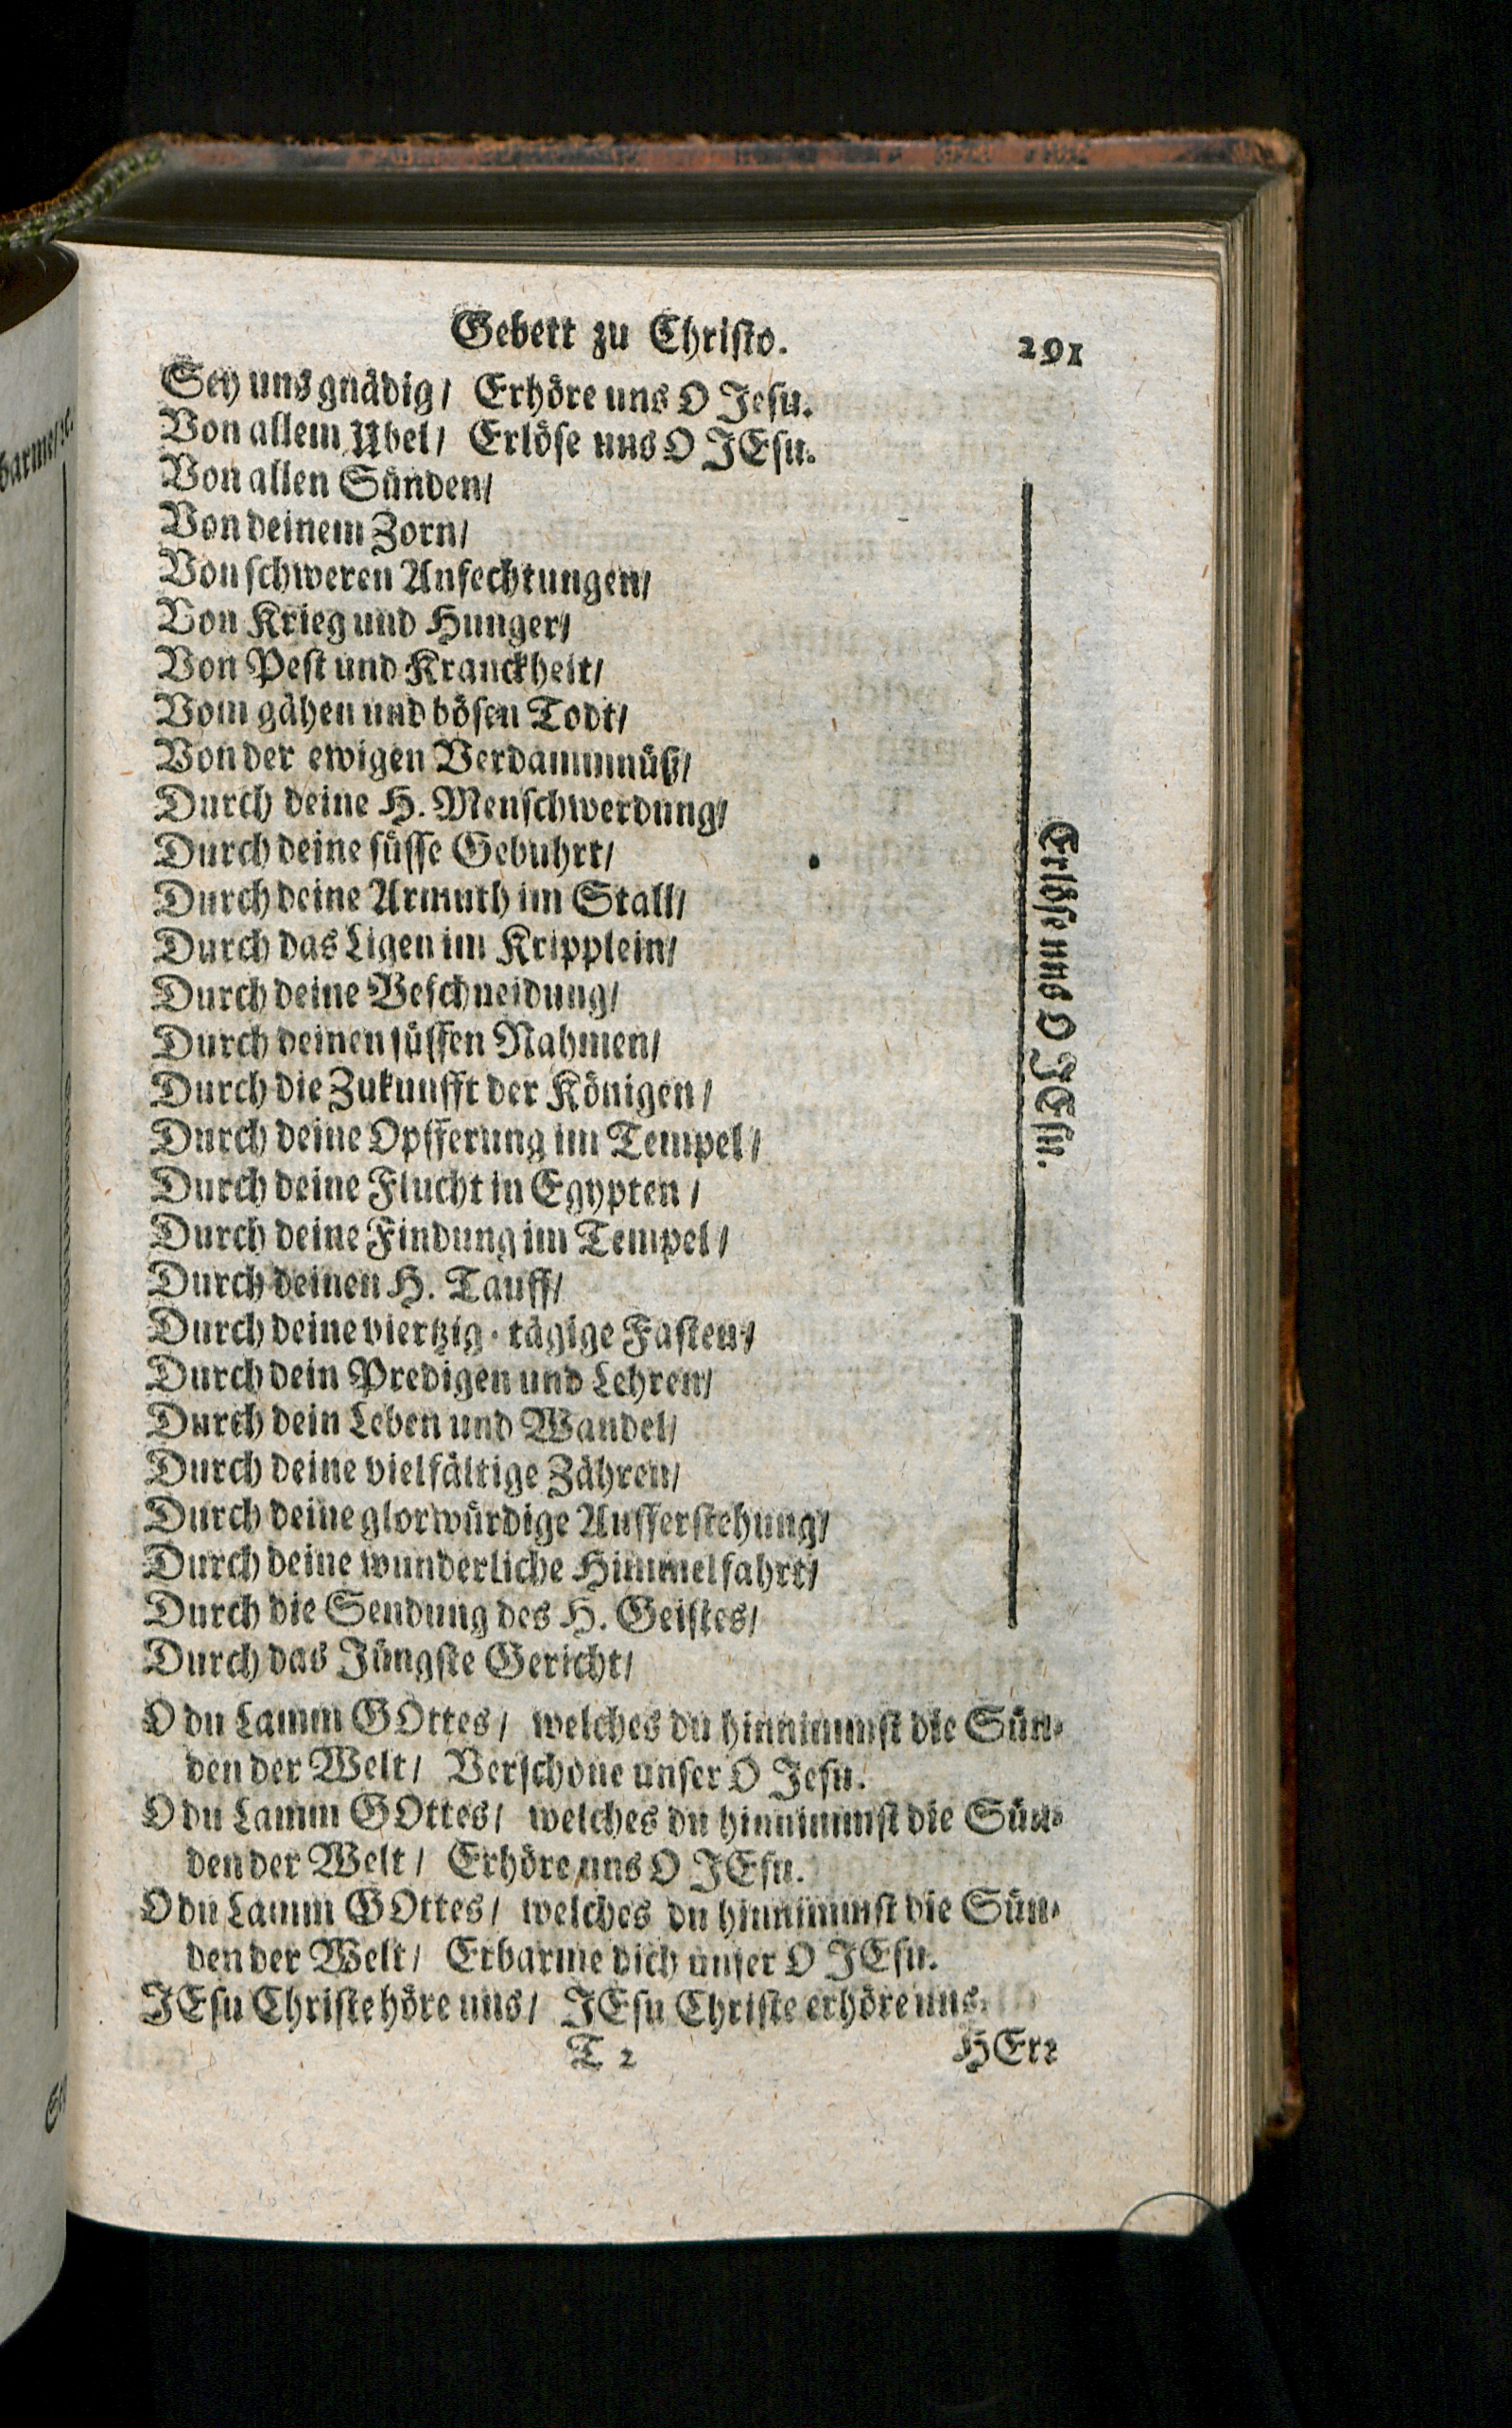 Gebett zu Christo. 291
Sey uns gnädig/ Erhöre uns O Jesu.
Von allem Ubel/ Erlöse uns O JEsu.
Von allen Sünden/
Von deinem Zorn/
Von schweren Anfechtungen/
Von Krieg und Hunger/
Von Pest und Kranckheit/
Vom gähen und bösen Todt/
Von der ewigen Verdammnüß/
Durch deine H. Menschwerdung/
Durch deine süsse Gebuhrt/
Durch deine Armuth im Stall/
Durch das Ligen im Kripplein/
Durch deine Beschneidung/
Durch deinen süssen Nahmen/
Durch die Zukunfft der Königen/
Durch deine Opfferung im Tempel/
Durch deine Flucht in Egypten/
Durch deine Findung im Tempel/
Durch deinen H. Tauff/
Durch deine viertzig-tägige Fasten/
Durch dein Predigen und Lehren/
Durch dein Leben und Wandel/
Durch deine vielfältige Zähren/
Durch deine glorwürdige Aufferstehung/
Durch deine wunderliche Himmelfahrt/
Durch die Sendung des H. Geistes/
Durch das Jüngste Gericht/
Erlöse uns O JEsu.
O du Lamm GOttes/ welches du hinnimmst die Sün-
den der Welt/ Verschone unser O Jesu.
O du Lamm GOttes/ welches du hinnimmst die Sün-
den der Welt/ Erhöre uns O JEsu.
O du Lamm GOttes/ welches du hinnimmst die Sün-
den der Welt/ Erbarme dich unser O JEsu.
JEsu Christe höre uns/ JEsu Christe erhöre uns.
T 2 HErr